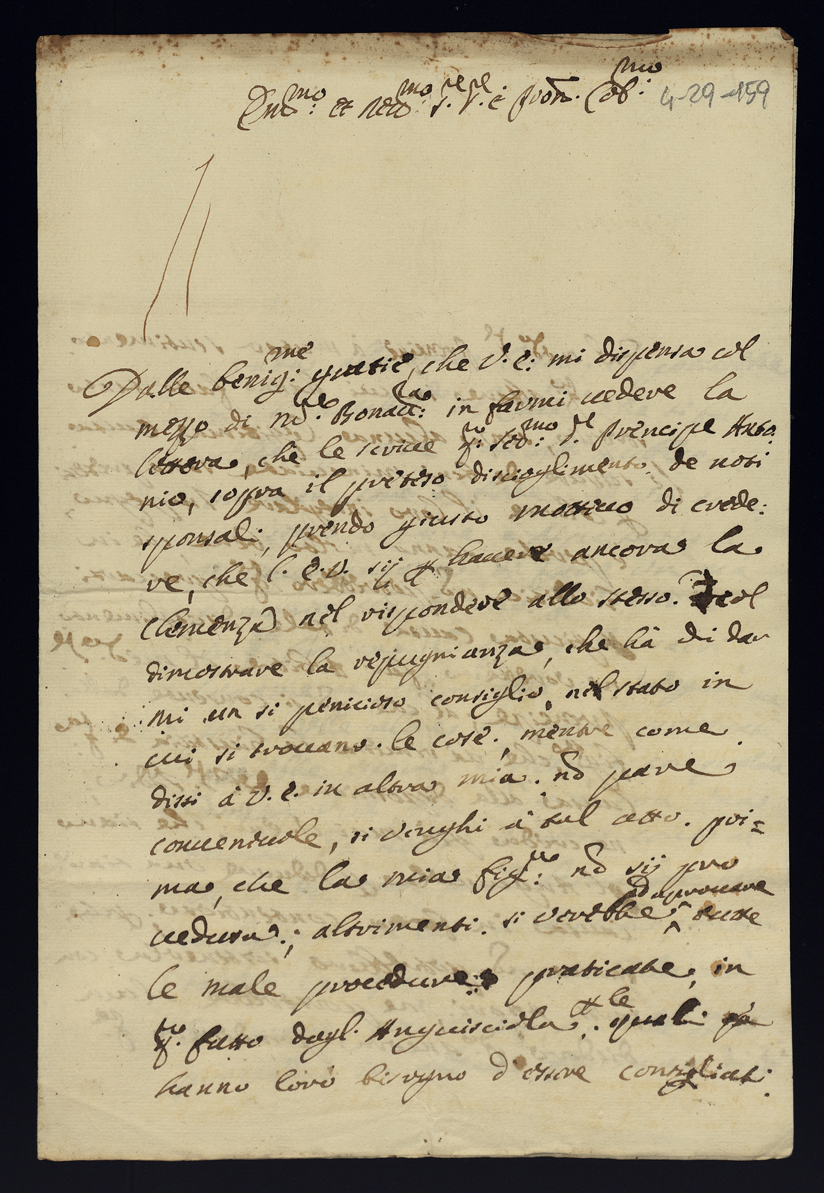 Em.mo et Re.mo S.re S.re e Pron. Col.mo 4-29-159
Dalle benig.me gratie, che V. E. mi dispensa col
mezzo di in farmi uedere la
lettera, che le scriue q. Ser.mo S.r Principe Anto
nio, sopra il preteso discioglimento de noti
sponsali, prendo giusto mottiuo di crede:
re, che l'E. V. sij p hauere ancora la
Clemenza nel rispondere allo stesso. col
dimostrare la repugnianza, che hà di dar
mi un si penicioso consiglio, nel stato in
cui si trouano le cose, mentre come
dissi à V. E. in altra mia. nō pare
conueniuole, si venghi à tal atto. pri=
ma, che la mia fig.a nō sij pro
ueduta; altrimenti si verebbe ad aprouare tutte
le male procedure praticate, in
q.to fatto dagl. Anguisciola, p le quali
hanno loro bisogno d'essere consigliati.